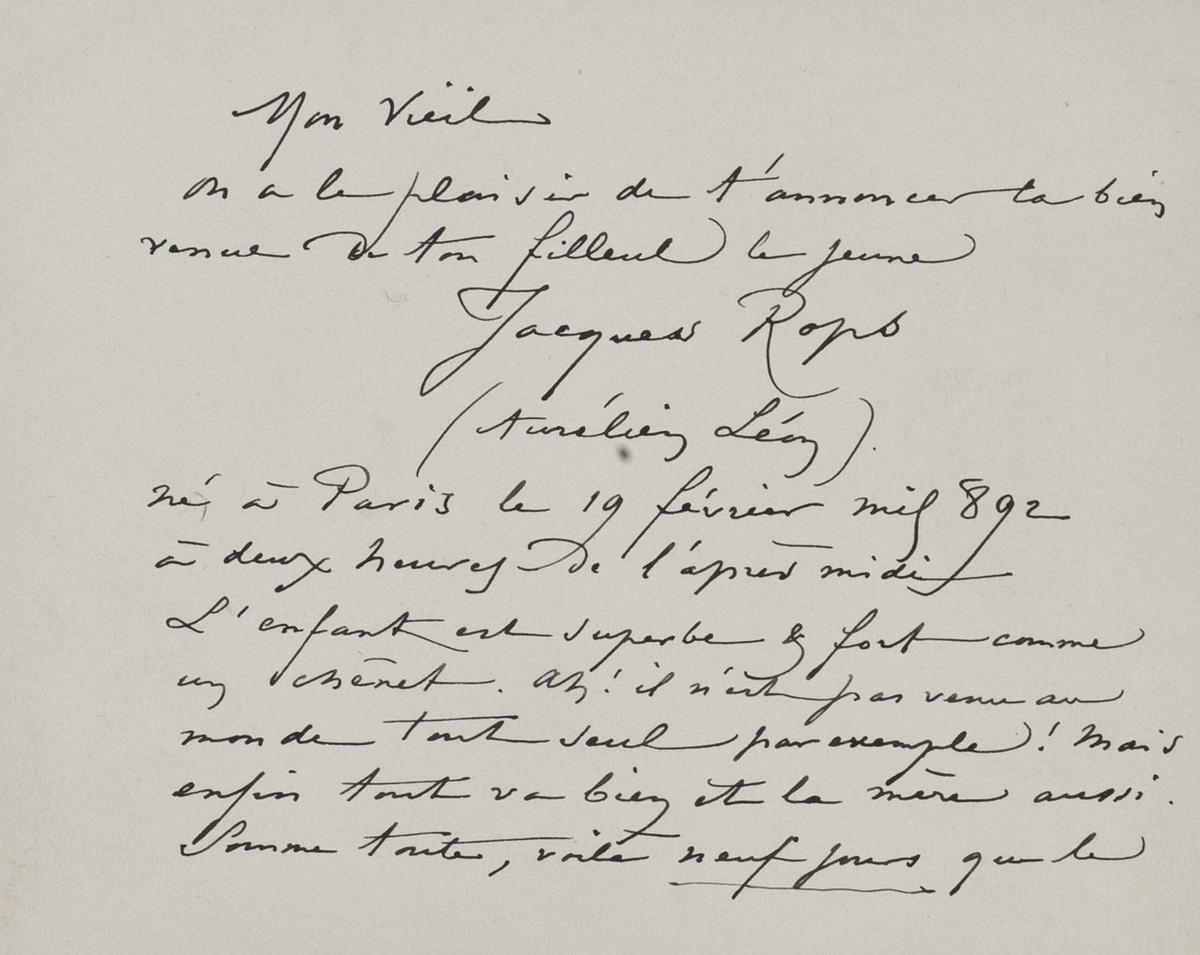 Mon Vieil
On a le plaisir de t'annoncer la bien
venue de ton filleul le jeune
Jacques Rops
(Aurélien Léon).
né à Paris le 19 février mil 892
à deux heures de l'après midi
L'enfant est superbe & fort comme
un chênet. Ah! il n'est pas venu au
monde tout seul par exemple! Mais
enfin tout va bien et la mère aussi.
Somme toute, voilà neuf jours que le